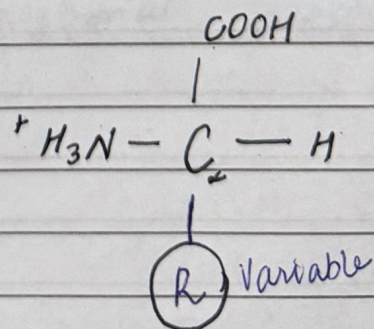 COOH
+H₃N – C – H
α
R Variable